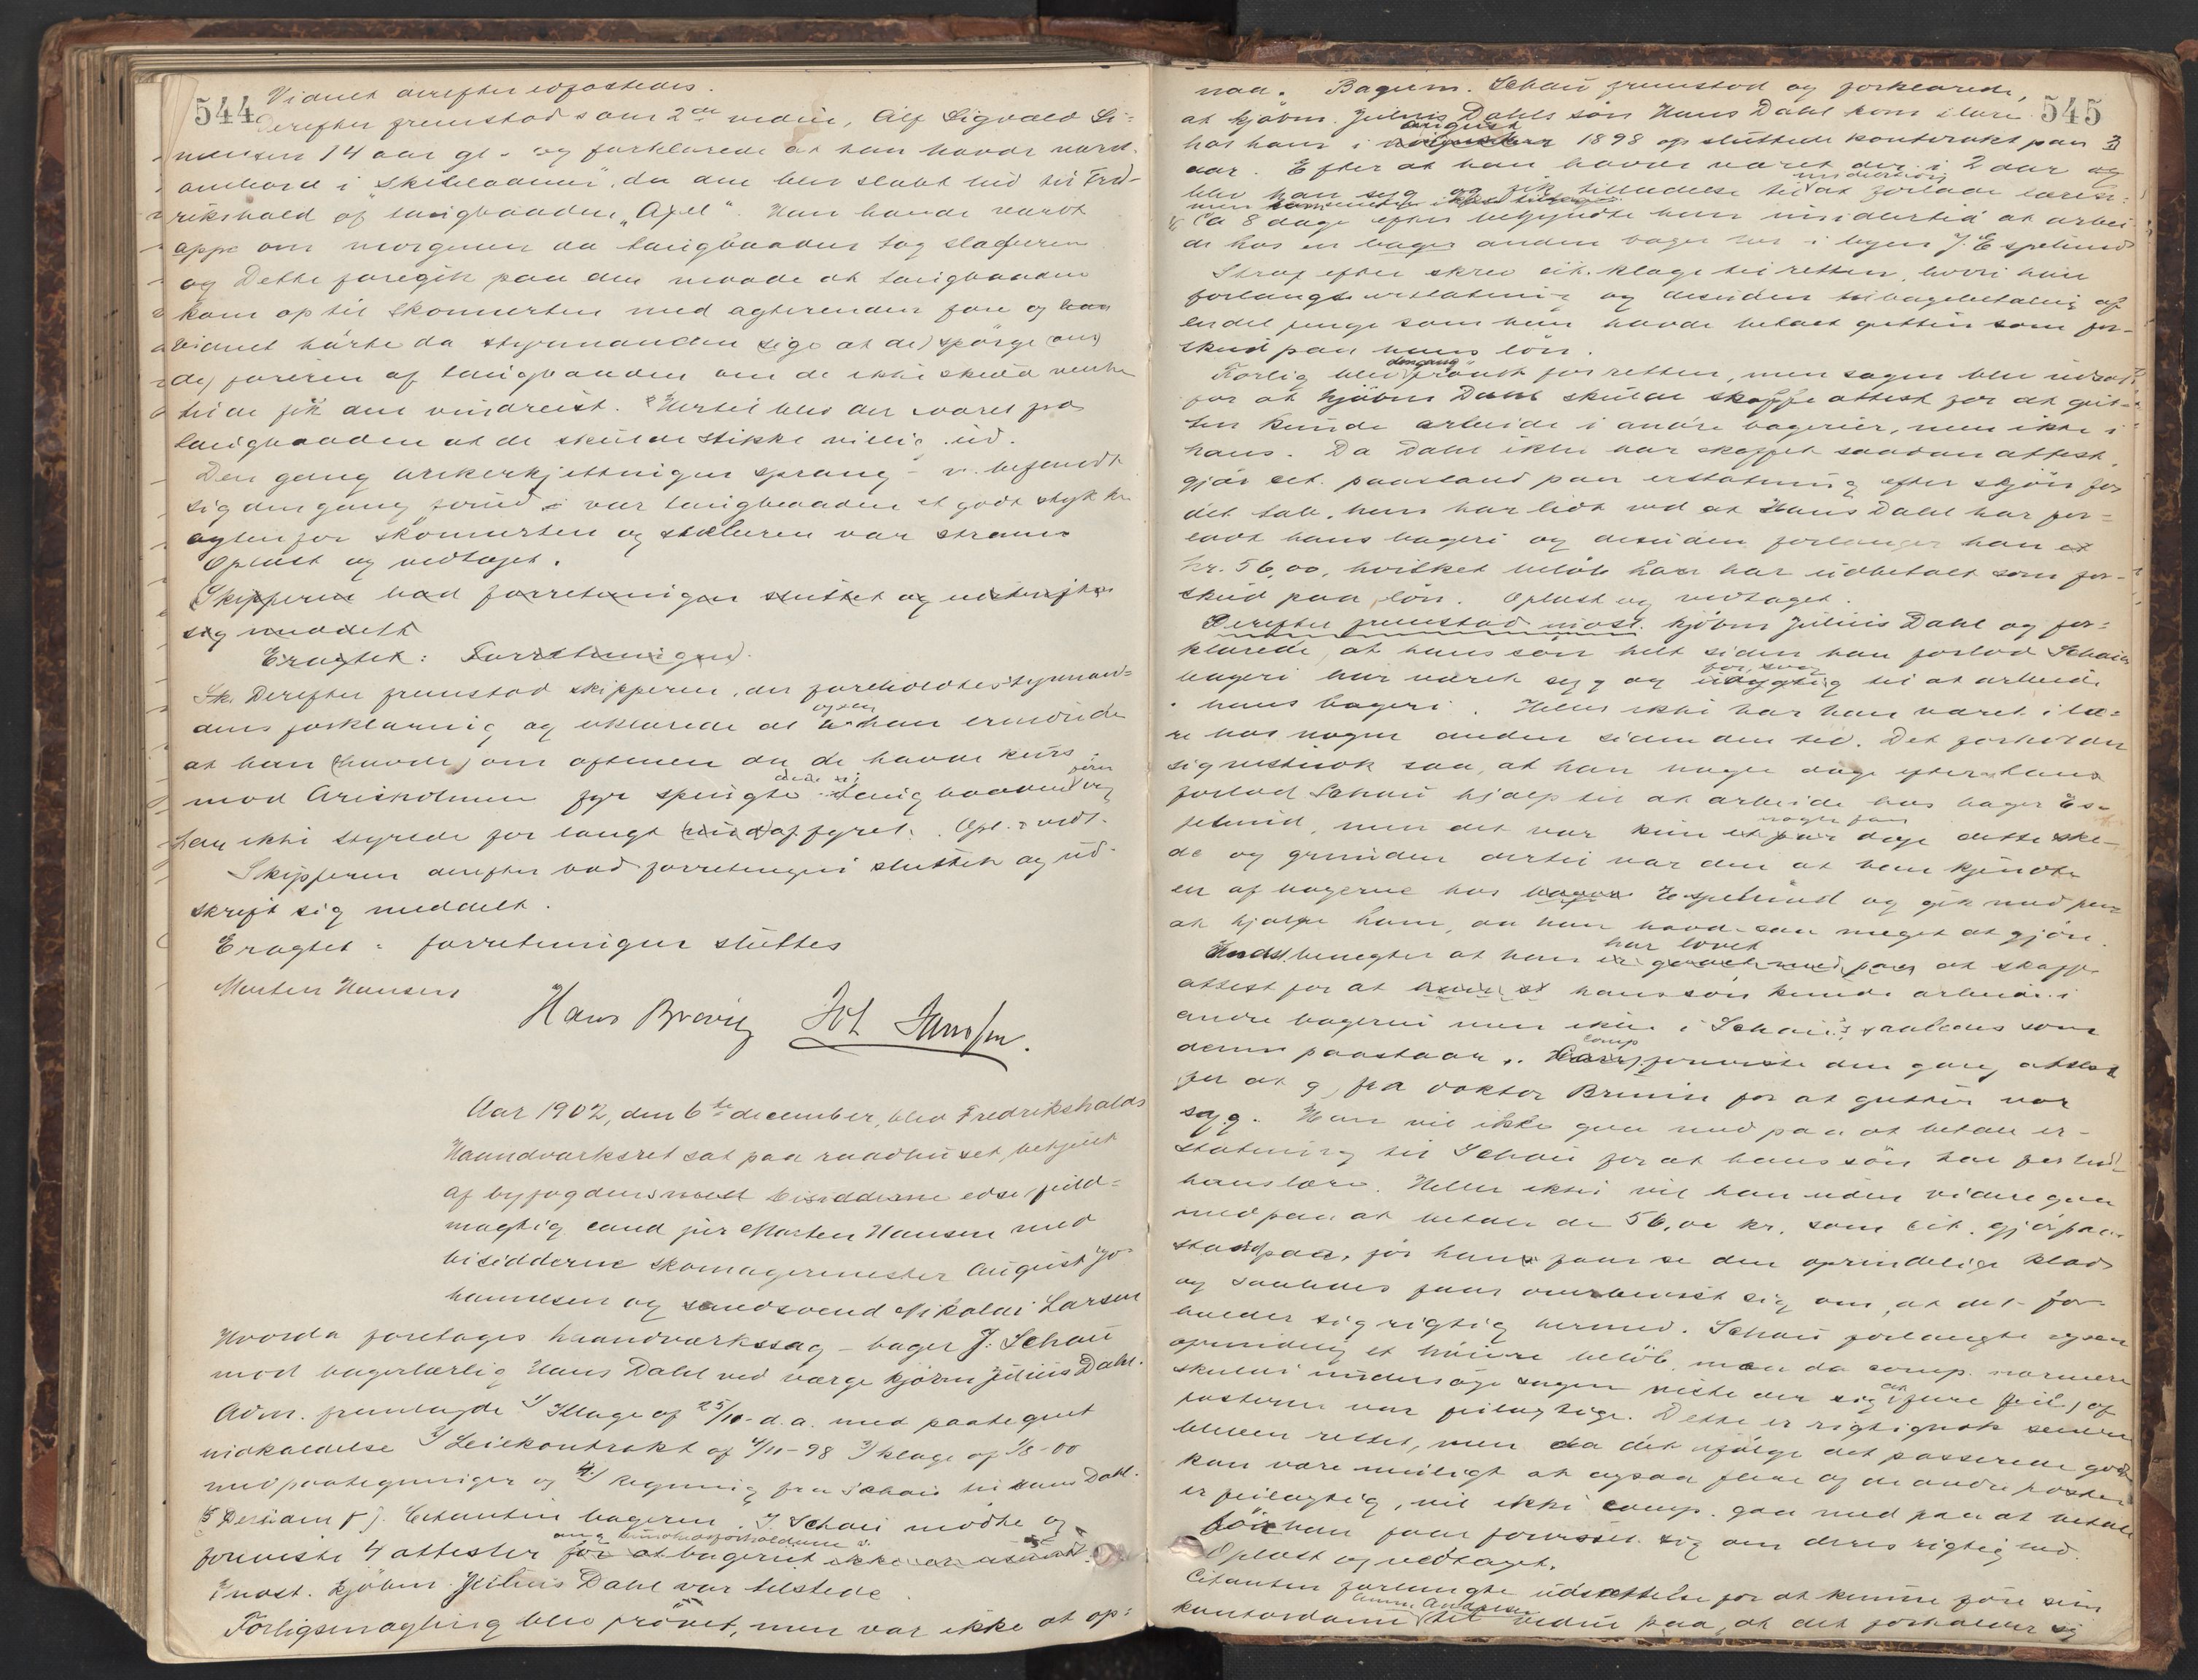 544
Vidnet derefter edfæstedes.
Derefter fremstod som 2det vidne, Alf Sigvald Si=
monsen 14 aar gl. og forklarede at han havde været
ombord i "Skibladner", da den blev slæbt ind til Fred-
rikshald af taugbaaden "Axel". Han havde været
oppe om morgenen da taugbaaden tog slæberen
og Dette foregik paa den maade at taugbaaden
kom op til skonnerten med agterenden före og han
Vidnet hörte da styrmanden (sige at de) spörge (om
de) föreren af taugbaaden om de ikke skulde vente
til de fik den vindreist. Hertil blev der svaret fra
taugbaaden at de skulde stikke villig ud.
Den gang ankerkjettingen sprang - v. befandt
sig den gang forud - var taugbaaden et godt stykke
agten for skonnerten og slæberen var stram
Oplæst og vedtaget.
Skipperen bad forretningen sluttet og udskrift
sig meddelt
Eragtet: Forretningen
Sk. Derefter fremstod skipperen, der foreholdtes styrman=
dens forklaring og erklærede at ogsaa han erindrede
at han (havde) om aftenen da de havde kurs
mod Grisholmen fyr spurgte taugbaadens förer
han ikke styrede for langt af fyret. Opl. & vedt.
Skipperen derefter bad forretningen sluttet og ud-
skrift sig meddelt.
Eragtet: forretningen sluttes
Morten Hansen
Hans Brovig Joh Jansen.
Aar 1902, den 6te december, blev Fredrikshalds
Haandværksret sat paa raadhuset, betjent
af byfogden med bisidderne edsv. fuld=
mægtig cand jur Morten Hansen med
bisidderne skomagermester August Jo=
hannesen og svend Nikolai Larsen
Hvorda foretoges haandværkssag - bager J. Schau
mod bagerlærling Hans Dahl ved værge kjöbm Julius Dahl.
Adm. fremlagde 1) Klage af 25/10 d.a. med paategnet
indkaldelse 2) Leiekontrakt af 4/11-98 3) klage af 1/8-00
med paategninger og 4) Regning fra Schau til Hans Dahl.
5 Desuden Citanten bageren J. Schau mödte og
foreviste 4 attester ang sundhedsforholdene v.
for at bageriet ikke
Indst. kjöbm. Julius Dahl var tilstede
Forligsmægling blev prövet, men var ikke at op=
545
naa. Bagerm. Schau fremstod og forklarede,
at kjöbm. Julius Dahls sön Hans Dahl kom i lære
hos ham i august 1898 og sluttede kontrakt paa 3
aar. Efter at han havde været der i 2 aar og
blev han syg og fik tilladelse til at forlade læren:
Ca 8 dage efter begyndte han imidlertid at arbei-
de hos en bager anden bager her i byen J. Espelund
Strax efter skrev cit. klage til retten, hvori han
forlangte erstatning og desuden tilbagebetaling af
endel penge som han havde betalt gutten som for-
skud paa hans lön.
Forlig blev dengang prövet for retten, men sagen blev udsat
for at kjöbm Dahl skulde skaffe attest for at gut-
ten kunde arbeide i andre bagerier, men ikke i
hans. Da Dahl ikke har skaffet saadan attest,
gjör cit. paastand paa erstatning efter skjön for
det tab, han har lidt ved at Hans Dahl har for=
ladt hans bageri og desuden forlanger han
kr. 56,00, hvilket belöb han har udbetalt som for-
skud paa lön. Oplæst og vedtaget.
Derefter fremstod indst. kjöbm Julius Dahl og for=
klarede, at hans sön helt siden han forlod Schaus
bageri har været syg og for svag til at arbeide
i hans bageri. Heller ikke har han været i læ=
re hos nogen anden siden den tid. Det forholder
sig vistnok saa, at han nogle dage efter at han
forlod Schau hjalp til at arbeide hos bager Es-
pelund, men det var kun nogle faa dage dette ske-
de og grunden dertil var den at han kjendte
en af bagerne hos bager Espelund og gik med paa
at hjælpe ham, da han havde saa meget at gjöre.
Indst. benegter at han har lovet at skaffe
attest for at hans sön kunde arbeide i
andre bagerier men ikke i Schau's, saaledes som
denne paastaar. Comp. foreviste den gang attest
fra doktor Bruun for at gutten var
syg. Han vil ikke gaa med paa at betale er-
statning til Schau for at hans sön har forladt
hans lære. Heller ikke vil han uden videre gaa
med paa at betale de 56,00 kr. som cit. gjör paa-
stand paa, för han faar se den oprindelige klad
og saaledes faar overbevist sig om, at det for-
holder sig rigtig hermed. Schau forlangte ogsaa
oprindelig et höiere belöb, men da comp. nærmere
skulde undersöge sagen viste der sig at flere feil, af
posterne var feilagtige. Dette er rigtignok senere
bleven rettet, men da det ifölge det passerede godt
kan være muligt at ogsaa flere af de andre poster
er feilagtig, vil ikke comp. gaa med paa at betale
för han faar forvisset sig om deres rigtighed.
Oplæst og vedtaget.
Citanten forlangte udsættelse for at kunne före sin
kontordame Anna Andersen til vidne paa, at det forholder sig